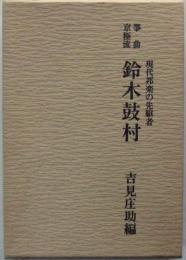 箏曲
京極流
現代邦楽の先駆者
鈴木鼓村
吉見庄助編